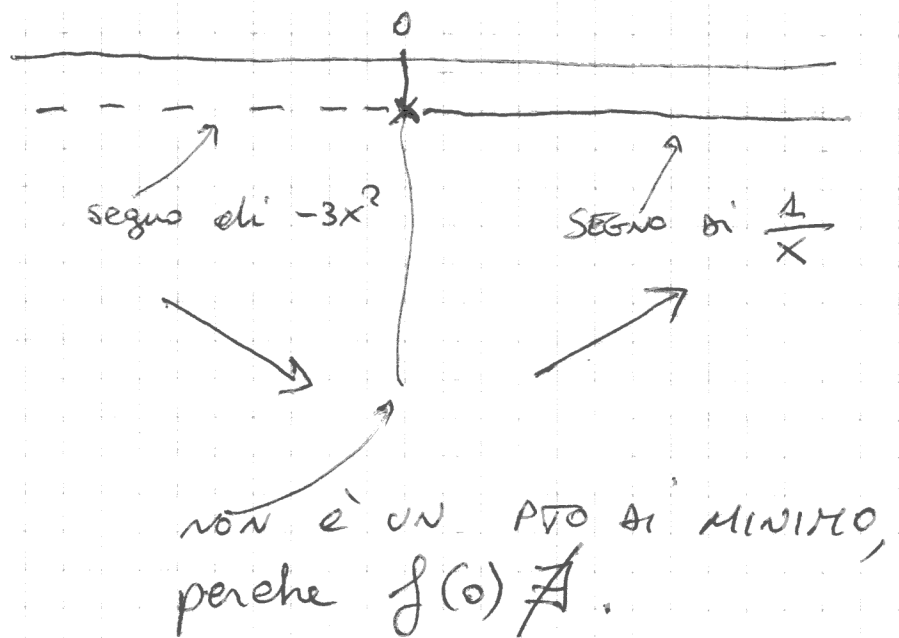 0
segno di -3x²
SEGNO DI 1/x
NON È UN PTO DI MINIMO,
perche f(0) ∄.